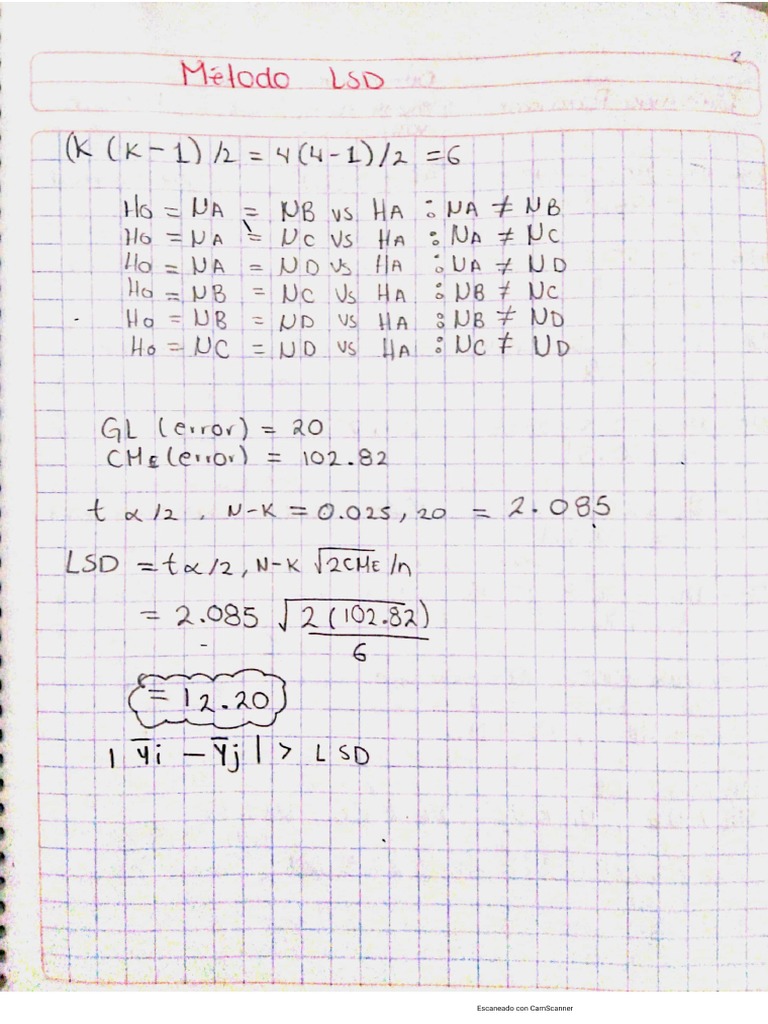 2
Método LSD
(K (K-1) /2 = 4(4-1)/2 = 6
Ho = NA = NB vs HA : NA ≠ NB
Ho = NA = NC vs HA : NA ≠ NC
Ho = NA = ND vs HA : NA ≠ ND
Ho = NB = NC vs HA : NB ≠ NC
Ho = NB = ND vs HA : NB ≠ ND
Ho = NC = ND vs HA : NC ≠ ND
GL (error) = 20
CME (error) = 102.82
t α/2, N-K = 0.025, 20 = 2.085
LSD = t α/2, N-K √2CME /n
= 2.085 √2(102.82)
6
= 12.20
| ȳi - ȳj | > LSD
Escaneado con CamScanner